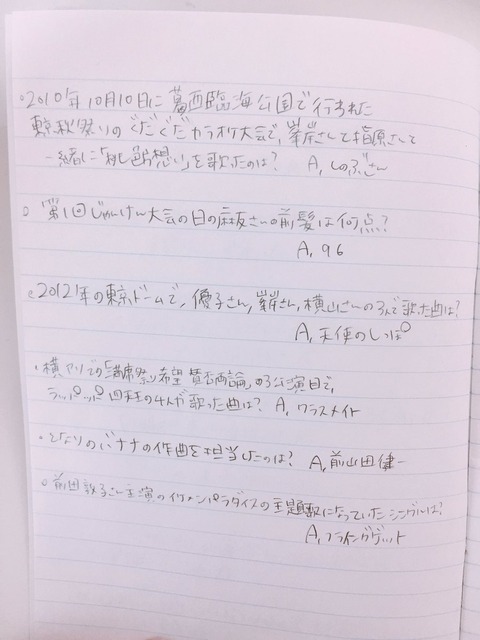 ○2010年10月10日に葛西臨海公園で行われた
東京秋祭りのぐだぐだカラオケ大会で、峯岸さんと指原さんと
一緒に「桃色片想い」を歌ったのは? A, しのぶさん
○第1回じゃんけん大会の日の麻友さんの前髪は何点?
A, 96
○2012年の東京ドームで、優子さん, 峯岸さん, 横山さんの3人で歌った曲は?
A, 天使のしっぽ
・横アリでの「満席祭り希望 賛否両論」の3公演目で、
ラッパッパ四天王の4人が歌った曲は? A, クラスメイト
・となりのバナナの作曲を担当したのは? A, 前山田健一
○前田敦子さん主演のイケメンパラダイスの主題歌になっていたシングルは?
A, フライングゲット